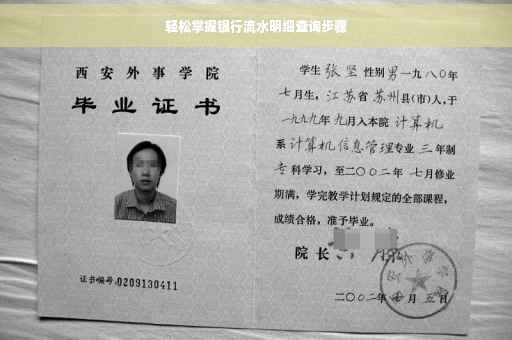 轻松掌握银行流水明细查询步骤
西安外事学院
毕业证书
证书编号:0209130411
学生 张坚 性别 男 一九八〇年
七月生, 江苏省 苏州 县(市)人, 于
一九九九年 九月入本院 计算机
系 计算机信息管理 专业 三 年制
专科学习, 至二〇〇二年 七月修业
期满, 学完教学计划规定的全部课程,
成绩合格, 准予毕业。
院长
二〇〇二年 月 五日